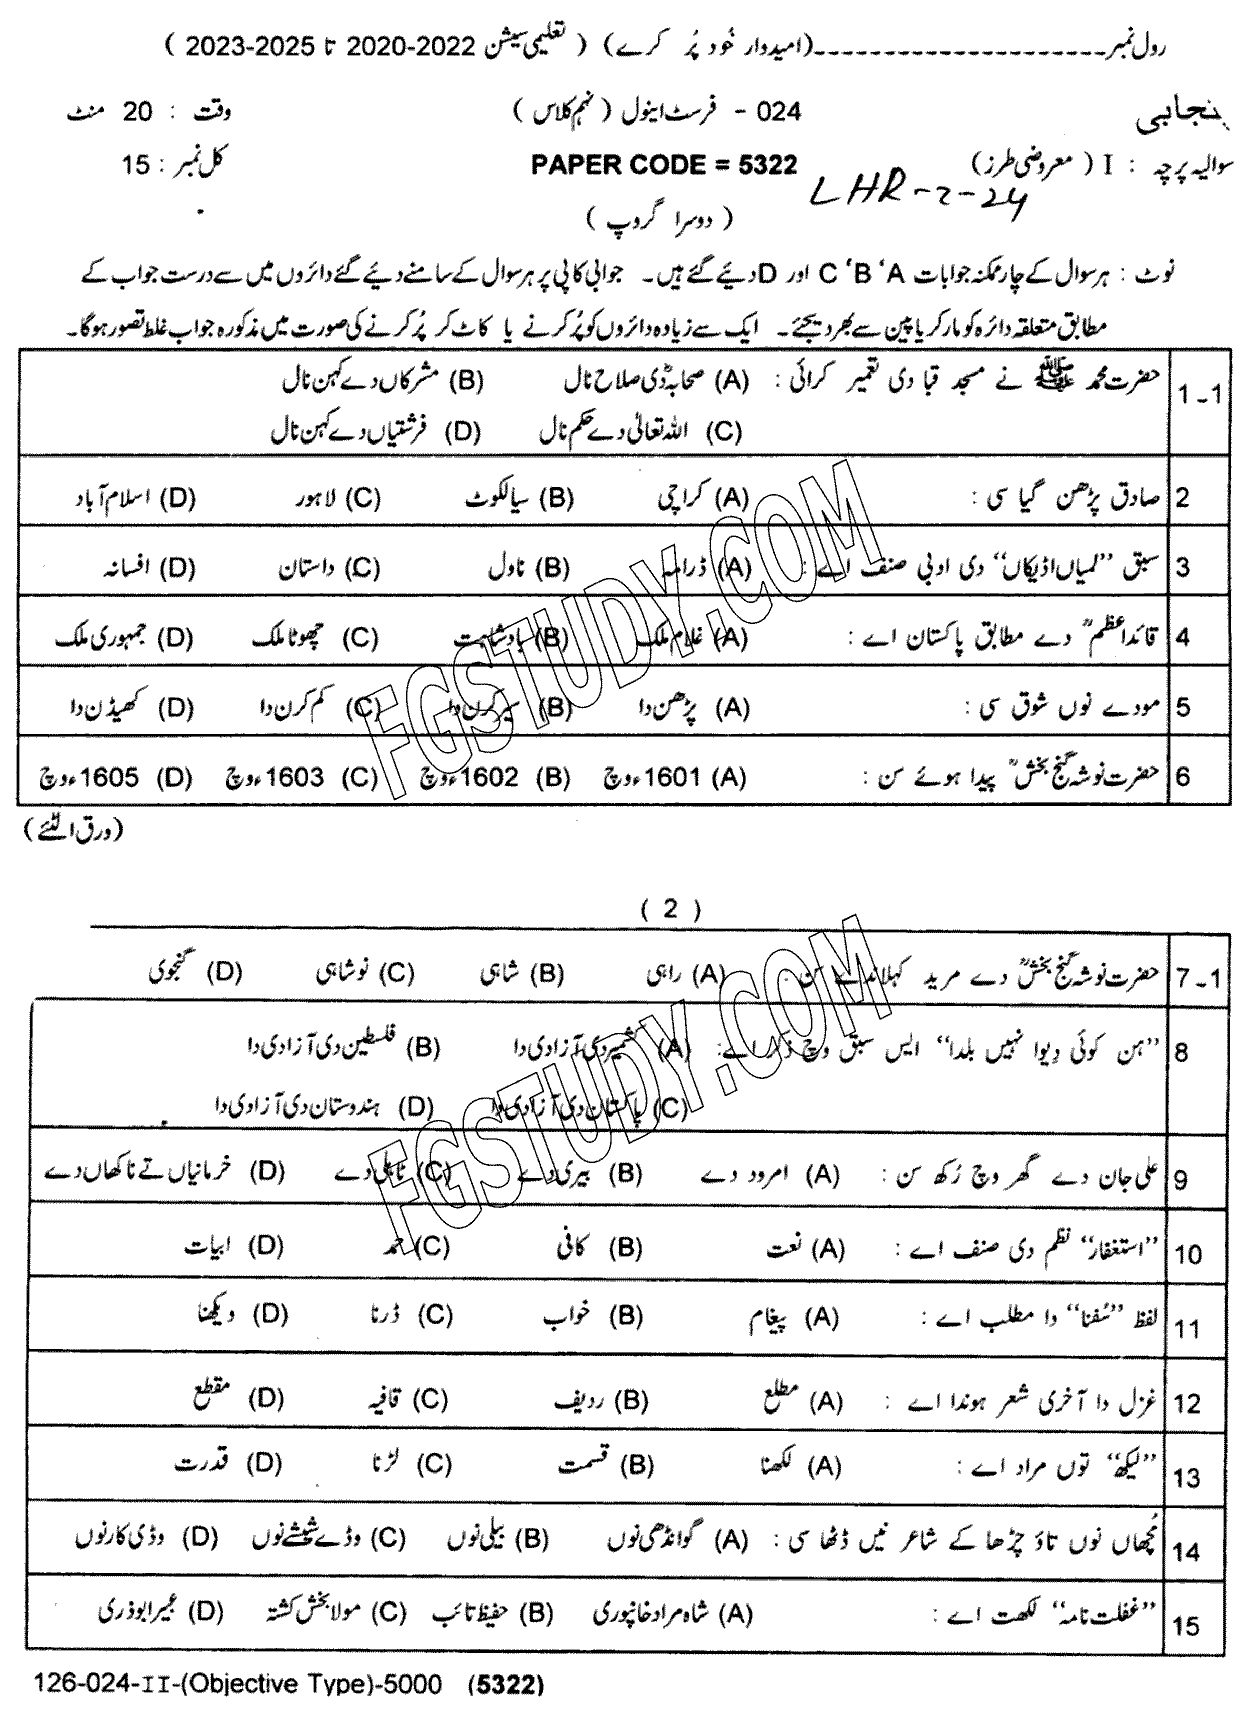 رول نمبر ـــــــــــــــــــــ (امیدوار خُود پُر کرے) ( تعلیمی سیشن 2022-2020 تا 2025-2023 )
پنجابی 024 - فرسٹ اینول ( نہم کلاس ) وقت : 20 منٹ
سوالیہ پرچہ : I ( معروضی طرز) PAPER CODE = 5322 کل نمبر : 15
LHR-2-24
( دوسرا گروپ )
نوٹ : ہر سوال کے چار ممکنہ جوابات A ‘B ‘C اور D دئیے گئے ہیں۔ جوابی کاپی پر ہر سوال کے سامنے دئیے گئے دائروں میں سے درست جواب کے
مطابق متعلقہ دائرہ کو مارکر یا پین سے بھر دیجئے۔ ایک سے زیادہ دائروں کو پُر کرنے یا کاٹ کر پُر کرنے کی صورت میں مذکورہ جواب غلط تصور ہوگا۔
1-1 حضرت محمد ﷺ نے مسجد قبا دی تعمیر کرائی : (A) صحابہؓ دی صلاح نال (B) مشرکاں دے کہن نال
(C) اللہ تعالیٰ دے حکم نال (D) فرشتیاں دے کہن نال
2 صادق پڑھن گیا سی : (A) کراچی (B) سیالکوٹ (C) لاہور (D) اسلام آباد
3 سبق ”لمیاں اڈیکاں“ دی ادبی صنف اے : (A) ڈرامہ (B) ناول (C) داستان (D) افسانہ
4 قائداعظمؒ دے مطابق پاکستان اے : (A) غلام ملک (B) بادشاہت (C) چھوٹا ملک (D) جمہوری ملک
5 مودے نوں شوق سی : (A) پڑھن دا (B) سیر کرن دا (C) کم کرن دا (D) کھیڈن دا
6 حضرت نوشہ گنج بخشؒ پیدا ہوئے سن : (A) 1601ء وچ (B) 1602ء وچ (C) 1603ء وچ (D) 1605ء وچ
(ورق الٹئے)
( 2 )
7-1 حضرت نوشہ گنج بخشؒ دے مرید کہلاندے سن : (A) راہی (B) شاہی (C) نوشاہی (D) گنجوی
8 ”ہن کوئی دِیوا نہیں بلدا“ ایس سبق وچ ذکر اے: (A) کشمیر دی آزادی دا (B) فلسطین دی آزادی دا
(C) پاکستان دی آزادی دا (D) ہندوستان دی آزادی دا
9 علی جان دے گھر وچ رُکھ سن : (A) امرود دے (B) بیری دے (C) ٹاہلی دے (D) خرمانیاں تے ناکھاں دے
10 ”استغفار“ نظم دی صنف اے : (A) نعت (B) کافی (C) حمد (D) ابیات
11 لفظ ”سُفنا“ دا مطلب اے : (A) پیغام (B) خواب (C) ڈرنا (D) ویکھنا
12 غزل دا آخری شعر ہوندا اے : (A) مطلع (B) ردیف (C) قافیہ (D) مقطع
13 ”لیکھ“ توں مراد اے : (A) لکھنا (B) قسمت (C) لڑنا (D) قدرت
14 مُچھاں نوں تاؤ چڑھا کے شاعر نیں ڈٹھا سی : (A) گوانڈھی نوں (B) بیلی نوں (C) وڈے شیشے نوں (D) وڈی کار نوں
15 ”غفلت نامہ“ لکھت اے : (A) شاہ مراد خانپوری (B) حفیظ تائب (C) مولا بخش کشتہ (D) عبیر ابوذری
126-024-II-(Objective Type)-5000 (5322)
FGSTUDY.COM
FGSTUDY.COM